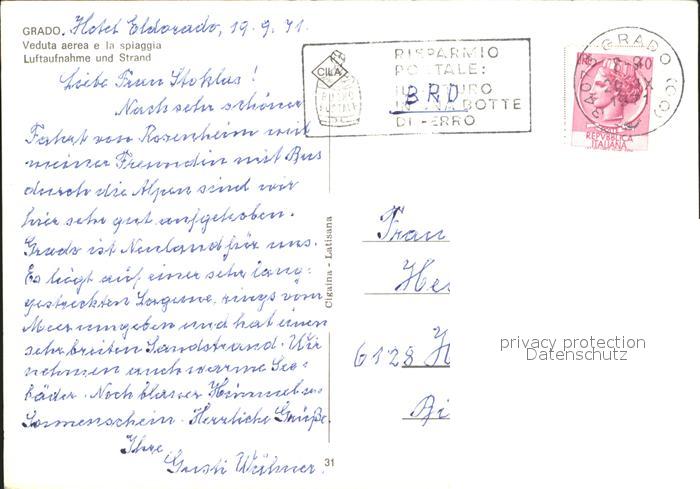 GRADO. Hotel Eldorado, 19.9.71.
Veduta aerea e la spiaggia
Luftaufnahme und Strand
Liebe Frau Stoklas!
Nach sehr schöner
Fahrt von Rosenheim mit
meiner Freundin mit Bus
durch die Alpen sind wir
hier sehr gut aufgehoben.
Grado ist Neuland für uns.
Es liegt auf einer sehr lang-
gestreckten Lagune, rings vom
Meer umgeben und hat einen
sehr breiten Sandstrand. Wir
nehmen auch warme See-
bäder. Noch blauer Himmel u.
Sonnenschein. Herrliche Grüße.
Ihre
Gusti
31
Cigaina - Latisana
CILA
RISPARMIO
POSTALE:
IL FUTURO
IN UNA BOTTE
DI FERRO
BRD
GRADO (GO)
40
REPVBBLICA
ITALIANA
Frau
He
6128 H
privacy protection
Datenschutz